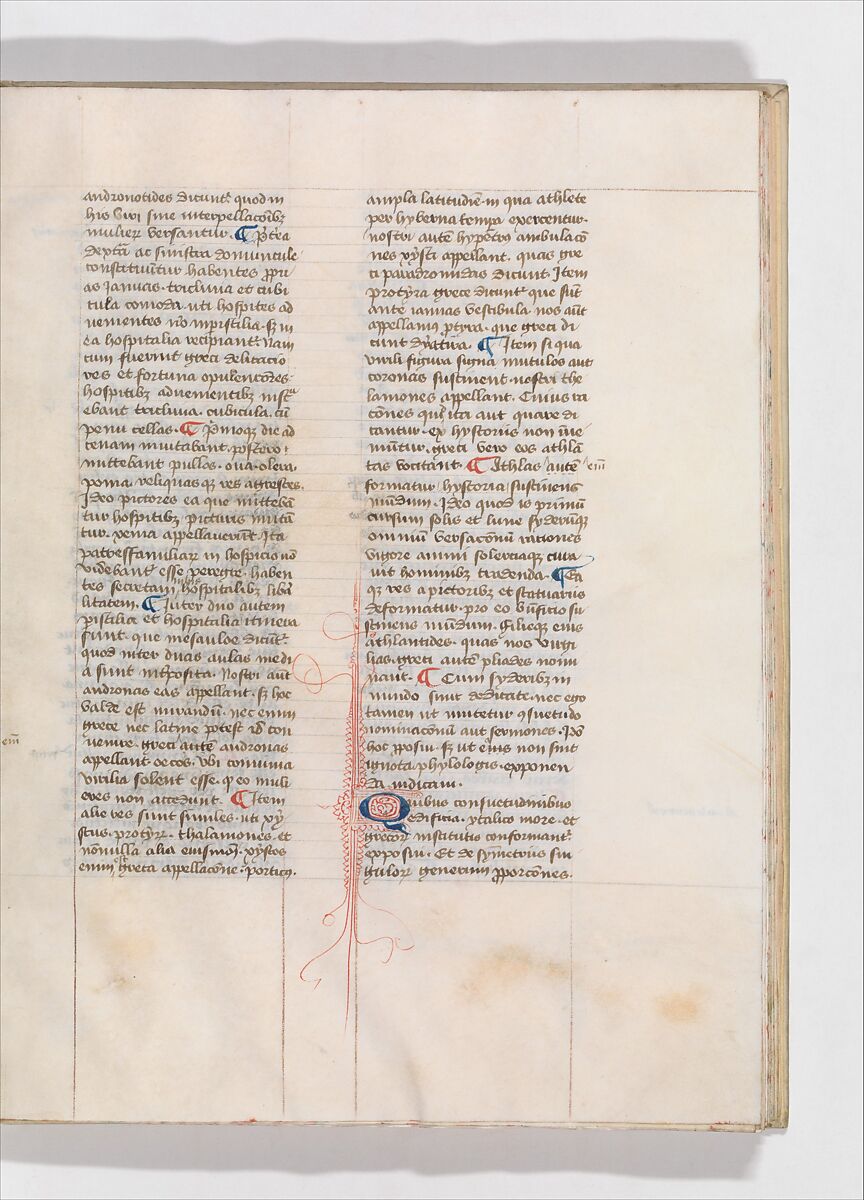 andronotides dicunt᷑ quod in
hiis viri sine interpellacōib
mulieꝝ versantur. ¶ P̄t̄ea
dext̄a ac sinistra domuncule
constituuntur habentes ꝓpri
as Januas. triclinia et cubi
cula comoda. uti hospites ad
uenientes nō in pistilia. sꝫ in
ea hospitalia recipiant᷑. Nam
cum fuerunt greci delicacio
res et fortuna opulenciores.
hospitibꝫ aduenientibꝫ inst
ebant triclinia. cubicula. cū
penu cellas. ¶ Primoqꝫ die ad
cenam inuitabant. postero
mittebant pullos. oua. olera.
poma. reliquasqꝫ res agrestes.
Ideo pictores ea que mittebā
tur hospitibꝫ picturis imitā
tur. xenia appellauerūt. Ita
patresfamiliaꝝ in hospicio nō
videbant᷑ esse peregre. haben
tes secretam in hospitalibꝫ libā
litatem. ¶ Inter duo autem
pistilia et hospitalia itinera
sunt. que mesaule dicūt᷑.
quod inter duas aulas medi
a sunt int̄posita. Nostri aut̄
andronas eas appellant. sꝫ hoc
valde est mirandū. nec enim
grece nec latine potest id con
uenire. greci autē andronas
appellant oecos. vbi conuiuia
virilia solent esse. qꝫ eo muli
eres non accedunt. ¶ Item
alie res sunt similes. uti xy
stus. protyꝝ. thalamones. et
nōnulla alia eiusmōi. xystos
enim est greca appellacōne. porticꝰ.
ampla latitudiē. in qua athlete
per hyberna tempa exercentur.
nostri autē hypet̄os ambulacō
nes xysti appellant. quas gre
ci paradromidas dicunt. Item
protyra grece dicunt᷑ que sūt
ante ianuas vestibula. nos aūt
appellamꝰ ptyra. que greci di
cunt dyatira. ¶ Item si qua
virili figura signa mutulos aut
coronas sustinent. nostri the
lamones appellant. Cuius ra
cōnes quid ita aut quare di
cantur. ex hystoriis non inue
niūtur. greci vero eos athlā
tas vocitant. ¶ Athlas autē eni
formatur hystoria sustinens
mūdum. Ideo quod is primū
cursum solis et lune syderūqꝫ
omniū versacōnū raciones
vigore animi solerciaqꝫ cura
uit hominibꝫ tradenda. ¶ Ea
qꝫ res a pictoribꝫ et statuariis
deformatur. pro eo bn̄ficio su
stinens mūdum. filieqꝫ eius
athlantides. quas nos virgi
lias. greci autē pliades nomi
nant. ¶ Cum syderibꝫ in
mundo sunt dedicate. nec ego
tamen ut mutetur ꝯsuetudo
nominacōnū aut sermones. Ido
hoc ꝓposui. sꝫ ut eius non sint
ignota phylologis. exponen
da iudicaui.
Quibus consuetudinibus
edificia. ytalico more. et
grecoꝝ institutis conformant᷑
exposui. Et de symetriis sin
guloꝝ generum ꝓporcōnes.
em̄